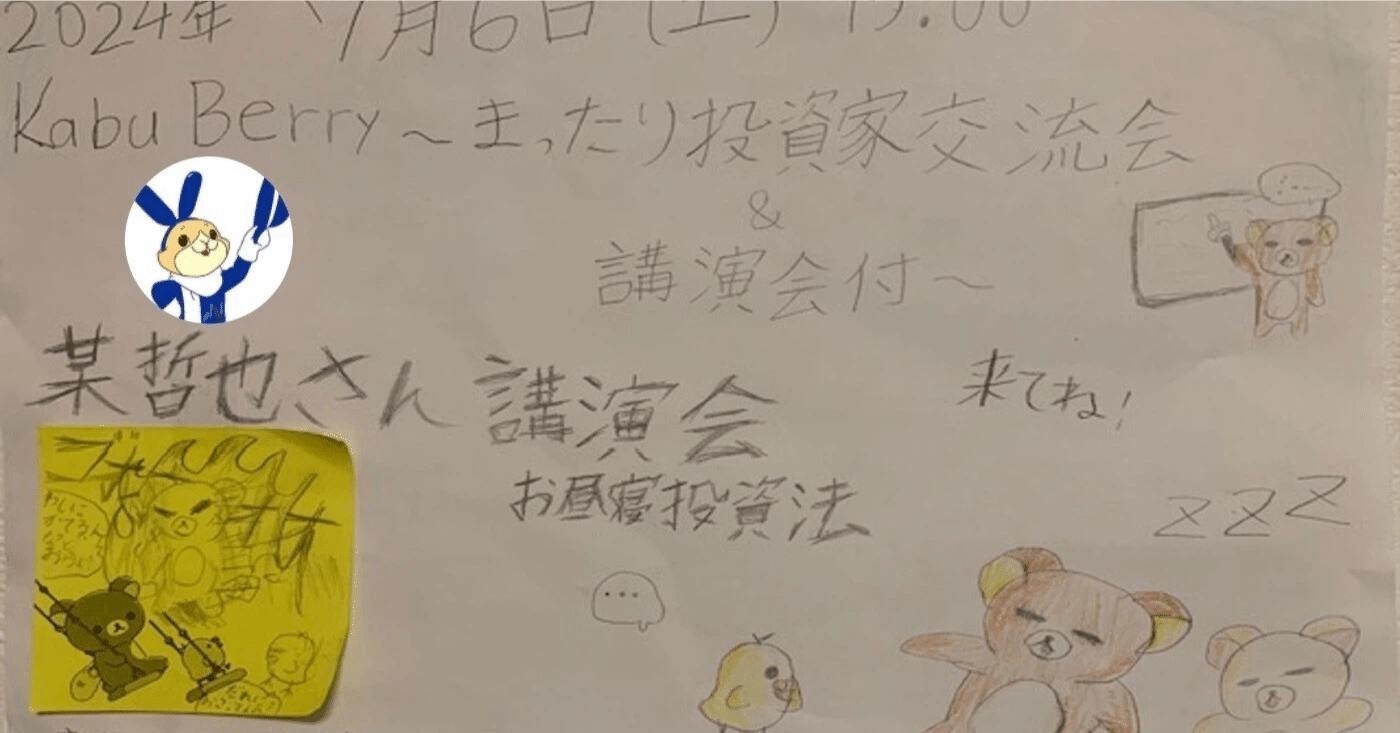 2024年 7月6日(土) 15:00
Kabu Berry～まったり投資家交流会
&
講演会付～
某哲也さん講演会
来てね!
お昼寝投資法
zzz